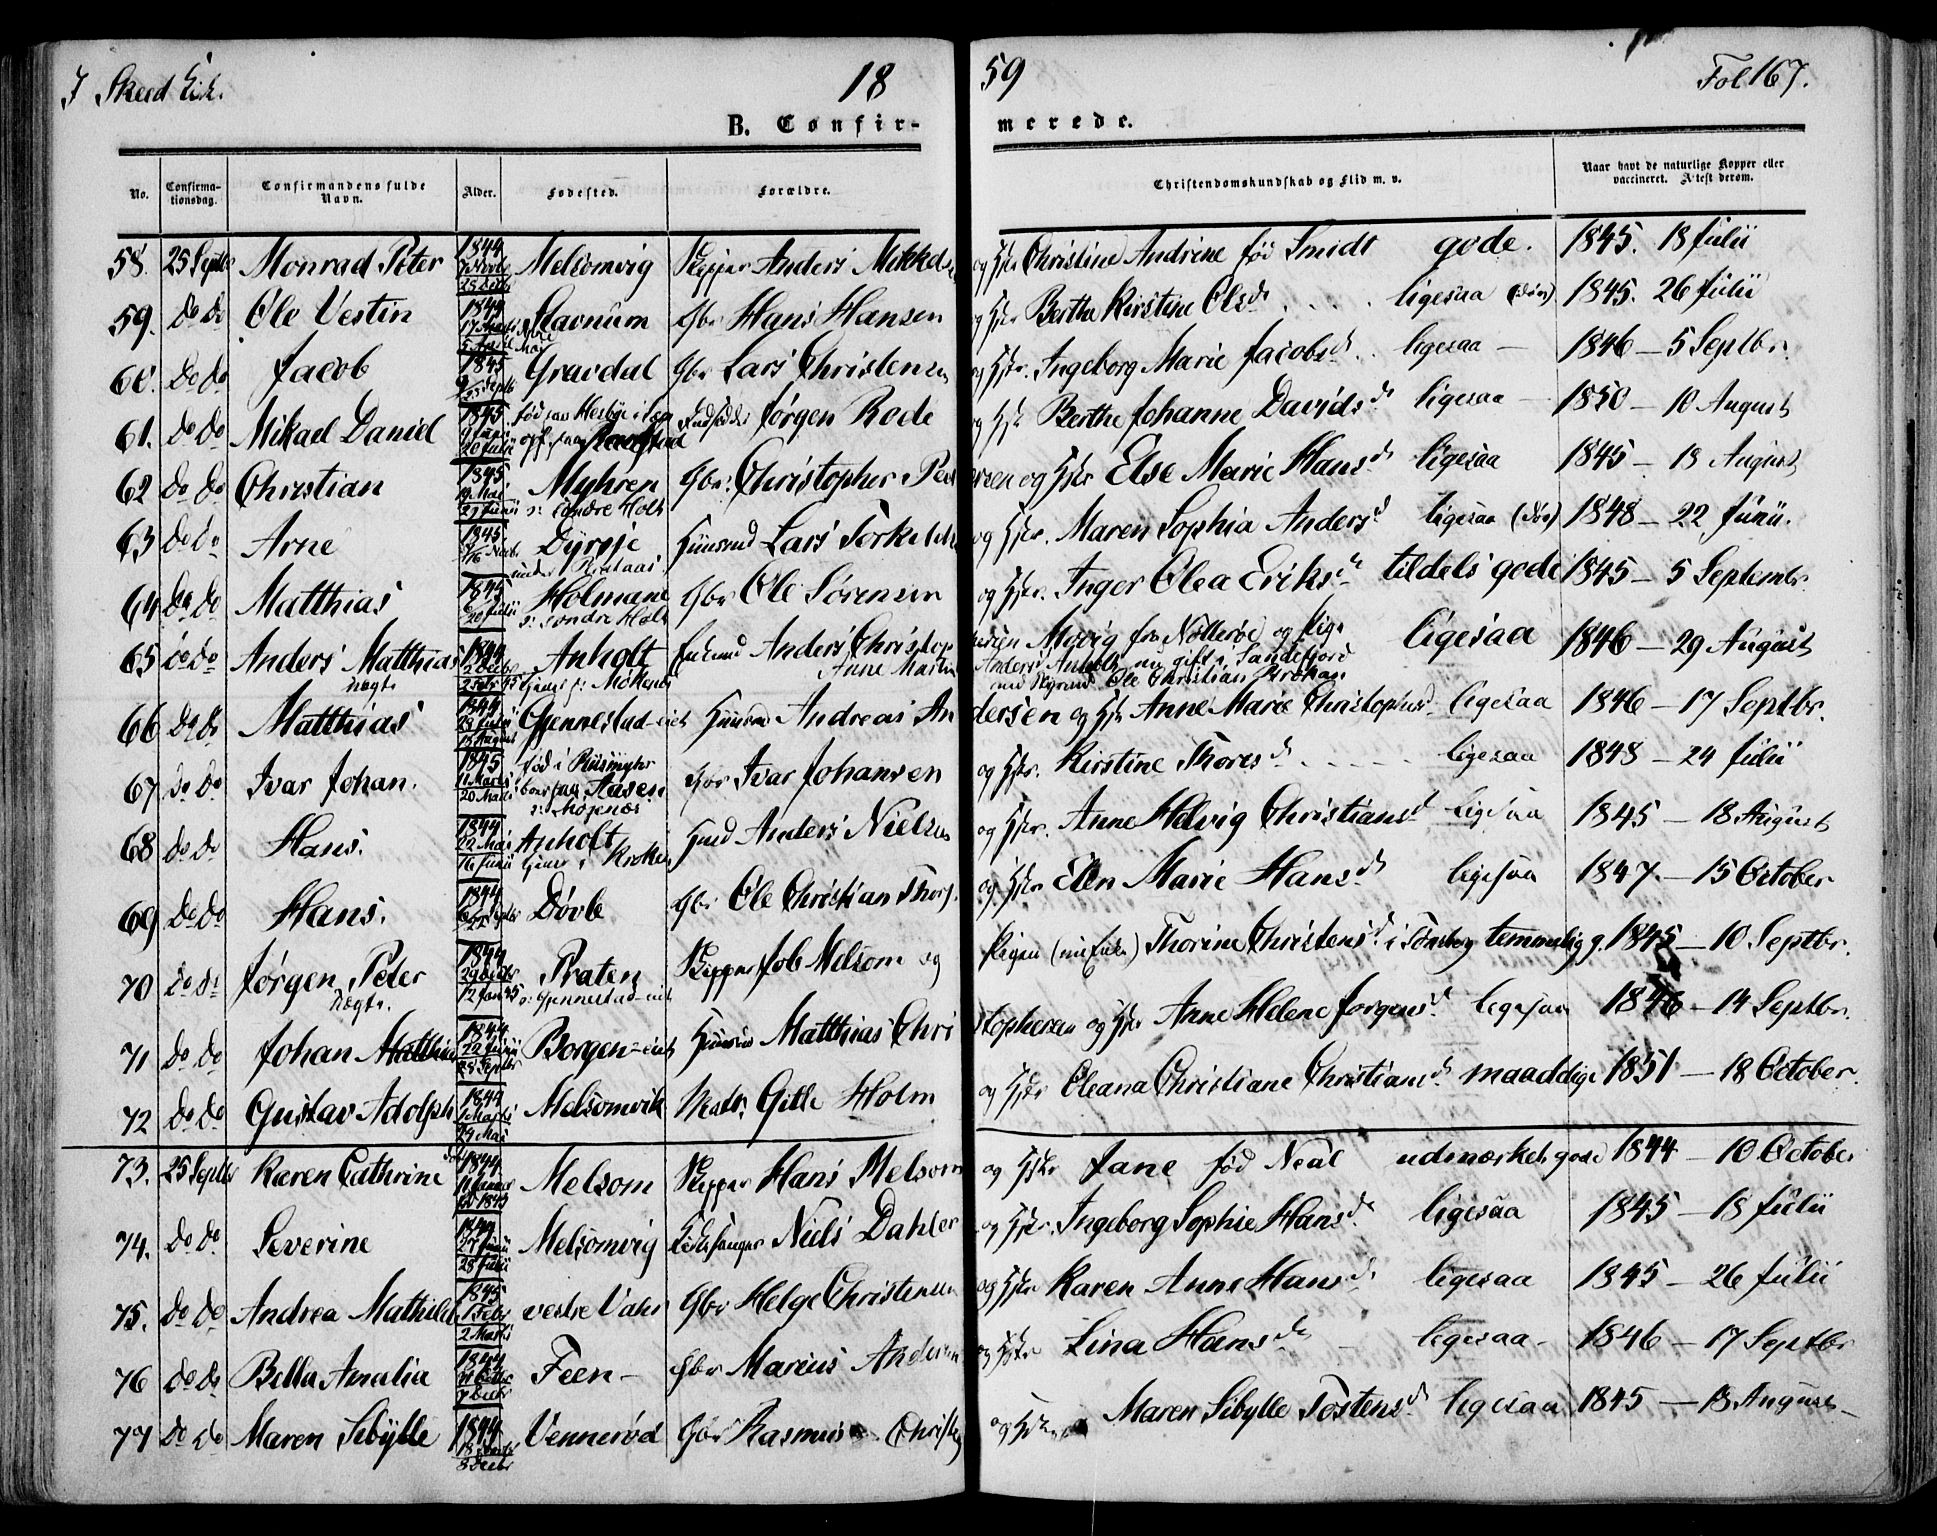 18 59
Fol 167.
B. Confir- merede.
No. Confirma-tionsdag. Confirmandens fulde Navn. Alder. Fødested. Forældre. Christendomskundskab og Flid m. v. Naar havt de naturlige Kopper eller vaccineret. Attest derom.
58. 25 Septbr Monrad Peter 1844 Melsomvig Skipper Anders Mikkels og Hstr Christine Andrine fød Smidt gode. 1845. 18 Julii
59. do do Ole Vestin Stavnum Gbr Hans Hansen og Hstr Bertha Kirstine Olsd. ligesaa 1845. 26 Julii
60. do do Jacob 1845 Gravdal Gbr Lars Christensen og Hstr. Ingeborg Marie Jacobsd. ligesaa — 1846 — 5 Septbr.
61. do do Mikael Daniel 1845 20 Julii Jørgen Rode og Hstr Berthe Johanne Davidsd ligesaa — 1850 — 10 August
62 do do Christian 1845 19 Mai Myhren s: søndre Holt Gbr: Christopher Pedersen og Hstr Else Marie Hansd ligesaa 1845 — 18 August
63 do do Arne 1845 Dyrsje under Huusmd Lars Torkelds og Hstr. Maren Sophia Andersd ligesaa 1848 — 22 Junii.
64 do do Matthias 1845 20 Julii Holmane s: søndre Holt Gbr Ole Sørensen og Hstr. Inger Olea Eriksd tildels gode 1845 — 5 Septembr.
65 do do Anders Matthias uægte 1844 Anholt tjener p: Møkenæs Anders Christop Anne Martin fra Nøtterøe og Pige Anders Anholt nu gift i Sandefjord med Ole Christian ligesaa 1846 — 29 August
66 do do Matthias 1844 Gjennestad-eiet Huusmd Andreas Andersen og Hstr Anne Marie Christophersd ligesaa 1846 — 17 Septbr.
67 do do Ivar Johan. 1845 11 Marts 20 Marts fød i boer paa Aasen Gbr Ivar Johansen og Hstr. Kirstine Thoresd ligesaa 1848 — 24 Julii
68 do do Hans. 1844 22 Mai 16 Junii Anholt tjener i Kroken Hmd Anders Nielsen og Hstr. Anne Helvig Christiansd ligesaa 1845 — 18 August
69 do do Hans. 1844 Døvle Gbr Ole Christian Thors. og Hstr Ellen Marie Hansd ligesaa 1847. — 15 October
70 do do Jørgen Peter uægte. 1844 12 Jan 45 Praten s: Gjennestad-eiet Skipper Job Melsom og Pigen Thorine Christensd. i Tønsberg temmelig g. 1845 — 10 Septbr.
71 do do Johan Matthias 1844 28 Septbr Borgen-eiet Huusmd Matthias Christophersen og Hstr Anne Helene Jørgensd ligesaa 1846 — 14 Septbr.
72 do do Gustav Adolph 1844 Melsomvik Gitle Holm og Hstr Oleana Christiane Christiansd. maadelige 1851 — 18 October.
73. 25 Septbr Karen Cathrine 1844 Melsom Skipper Hans Melsom og Hstr Jane fød Neal udmærket gode 1844 — 10 October
74. do do. Severine 1844 28 Julii Melsomvig Kirkesanger Niels Dahler og Hstr. Ingeborg Sophie Hansd. ligesaa 1845 — 18 Julii
75. do do Andrea Mathilde 1845 1 Febr 2 Marts vestre Vahr Gbr Helge Christensen og Hstr Karen Anne Hansd. ligesaa 1845 — 26 Julii
76 do do Bella Amalia 1844 7 Decbr Feen — Gbr Marius Andersen og Hstr Lina Hansd. ligesaa — 1846 — 17 Septbr
77 do do Maren Sibylle 1844 8 Decbr Vennerød Gbr Rasmus Christ og Hstr Maren Sibylle Tostensd. ligesaa 1845 — 18 August